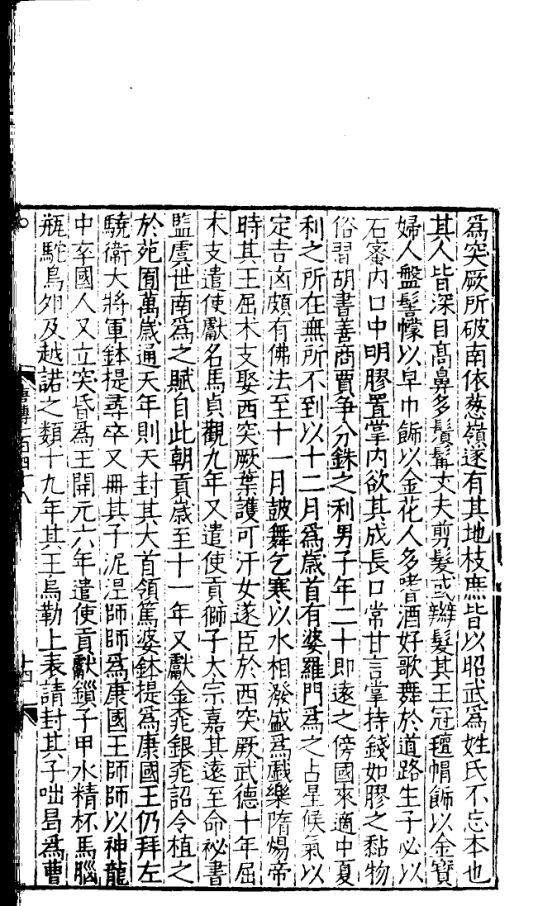 為突厥所破南依葱嶺遂有其地枝庶皆以昭武為姓氏不忘本也
其人皆深目高鼻多鬚髯丈夫剪髮或辮髮其王冠氊帽飾以金寶
婦人盤髻幪以皁巾飾以金花人多嗜酒好歌舞於道路生子必以
石蜜内口中明膠置掌内欲其成長口常甘言掌持錢如膠之黏物
俗習胡書善商賈爭分銖之利男子年二十即遠之傍國來適中夏
利之所在無所不到以十二月為歳首有婆羅門為之占星候氣以
定吉凶頗有佛法至十一月鼓舞乞寒以水相潑盛為戲樂隋煬帝
時其王屈木支娶西突厥葉護可汗女遂臣於西突厥武德十年屈
木支遣使獻名馬貞觀九年又遣使貢獅子太宗嘉其遠至命祕書
監虞世南為之賦自此朝貢歳至十一年又獻金桃銀桃詔令植之
於苑囿萬歳通天年則天封其大首領篤婆鉢提為康國王仍拜左
驍衛大將軍鉢提尋卒又冊其子泥涅師師為康國王師師以神龍
中卒國人又立突昏為王開元六年遣使貢獻鎖子甲水精杯馬腦
瓶駝鳥卵及越諾之類十九年其王烏勒上表請封其子咄曷為曹
唐傳一百四十八
十四